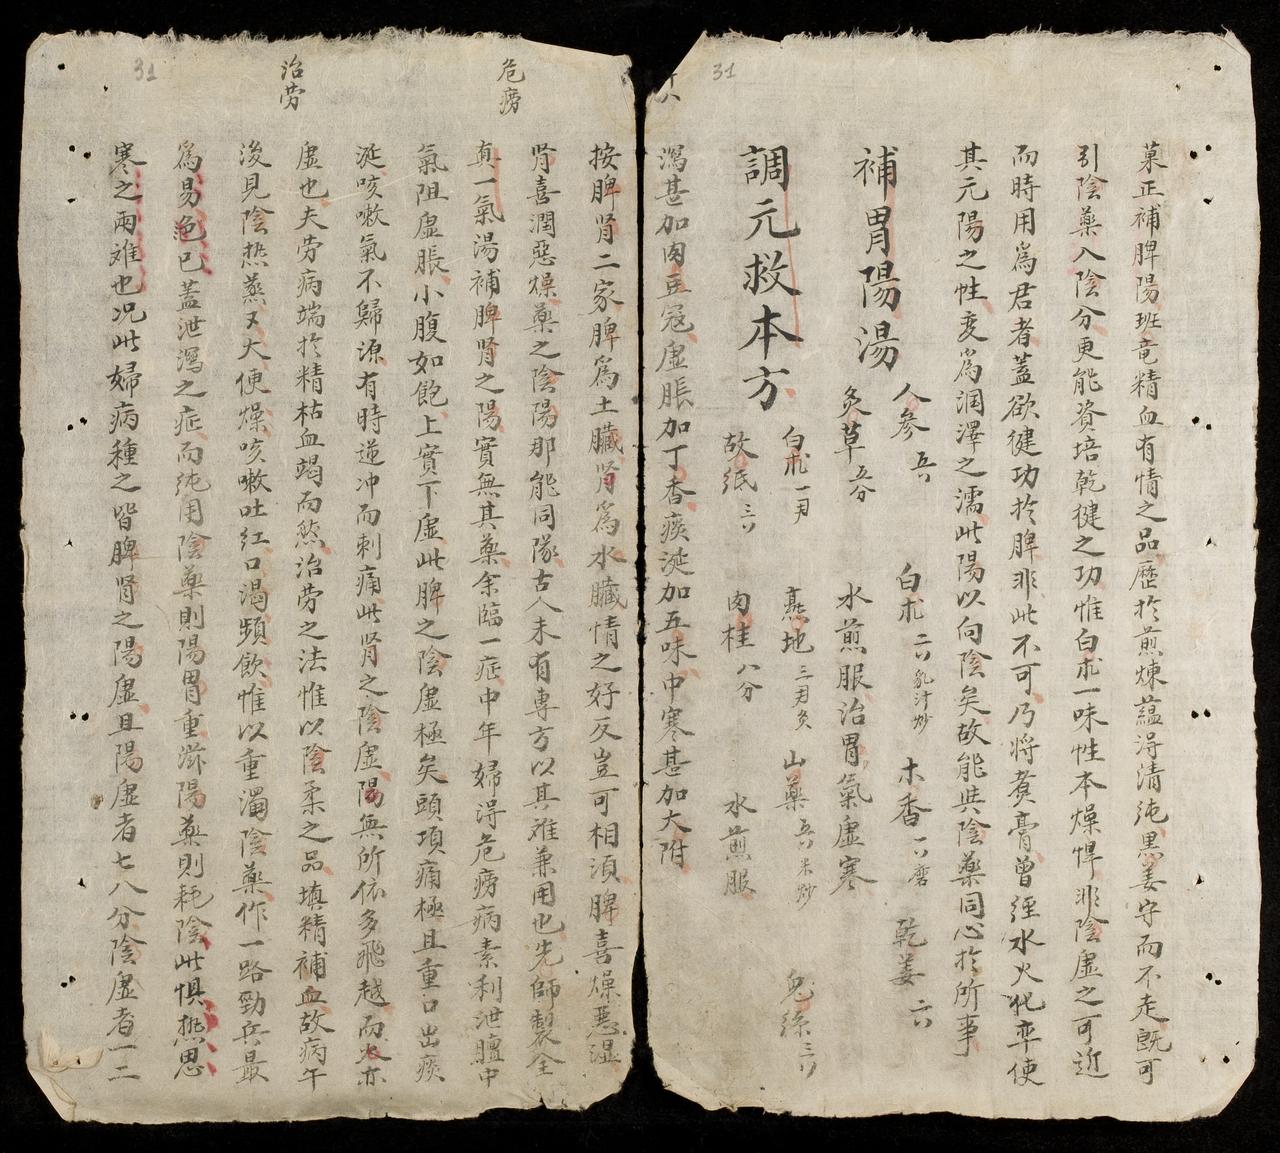 31
菓正補脾陽班竜精血有情之品歷於煎煉蘊淂清純黒姜守而不走既可
引陰藥入陰分更能資培乾健之功惟白朮一味性本燥悍非陰虚之可近
而時用爲君者蓋欲健功於脾非此不可乃將煑膏曾經水火化率使
其元陽之性変爲润澤之濡此陽以向陰矣故能與陰藥同心於所事
補胃陽湯
人參 五
白朮 二 乳汁炒
木香 一 磨
乾姜 六
炙草 五分
水煎服治胃氣虚寒
調元救本方
白朮 一両
熹地 三両 炙
山藥 五 米炒
兔絲 三
故紙 三
肉桂 八分
水煎服
瀉甚加肉豆冠虚脹加丁香痰涎加五味中寒甚加大附
31
危癆
治劳
按脾肾二家脾爲土臟肾爲水臟情之好反豈可相須脾喜燥惡湿
肾喜潤惡燥藥之陰陽那能同隊古人未有專方以其难兼用也先師製全
真一氣湯補脾肾之陽實無其藥余臨一症中年婦淂危癆病素利泄膻中
氣阻虚脹小腹如飽上實下虚此脾之陰虚極矣頭項痛極且重口出痰
涎咳嗽氣不歸源有時逆冲而刺痛此肾之陰虚陽無所依多飛越而火亦
虚也夫劳病端於精枯血竭而然治劳之法惟以陰柔之品填精補血故病午
後見陰热蒸又大便燥咳嗽吐红口渴頻飲惟以重濁陰藥作一路勁兵最
爲易絶已蓋泄瀉之症而純用陰藥則陽胃重滋陽藥則耗陰此惧热思
寒之兩难也况此婦病種之皆脾肾之陽虚且陽虚者七八分陰虚者一二